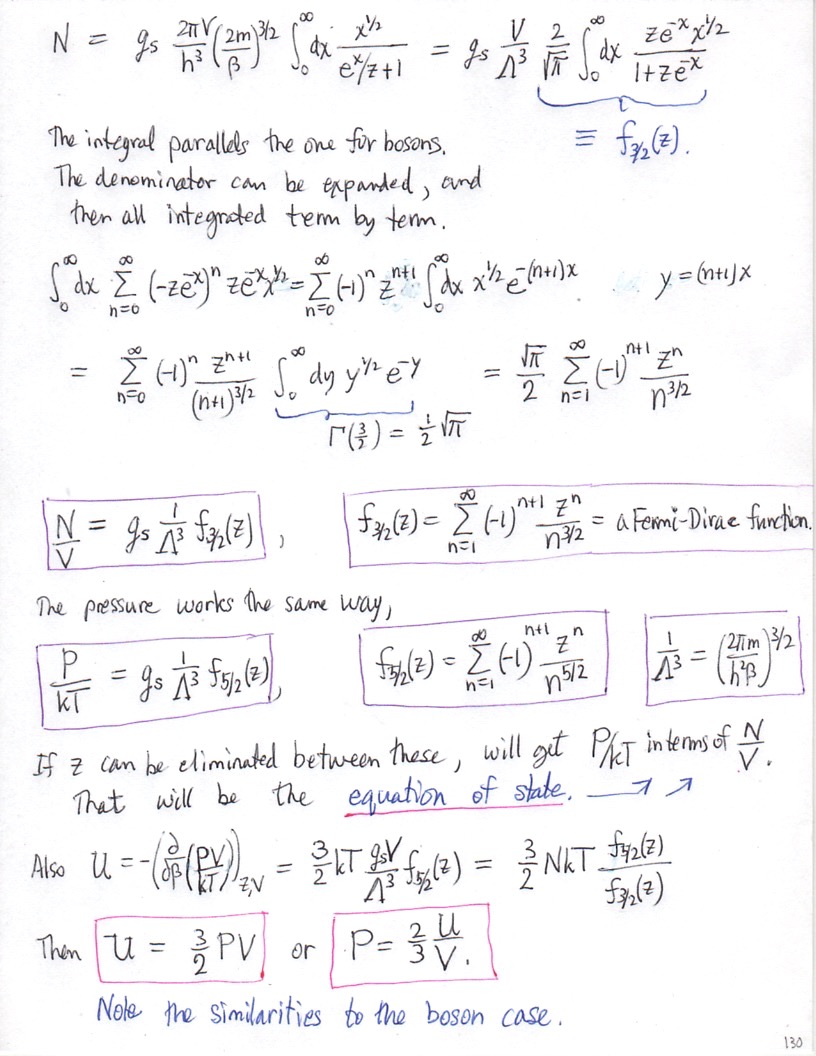 N = g_s 2πV/h³ (2m/β)^{3/2} ∫₀^∞ dx x^{1/2}/(e^x/z+1) = g_s V/Λ³ 2/√π ∫₀^∞ dx ze^{-x}x^{1/2}/(1+ze^{-x})
≡ f_{3/2}(z).
The integral parallels the one for bosons.
The denominator can be expanded, and
then all integrated term by term.
∫₀^∞ dx Σ_{n=0}^∞ (-ze^{-x})^n ze^{-x}x^{1/2} = Σ_{n=0}^∞ (-1)^n z^{n+1} ∫₀^∞ dx x^{1/2} e^{-(n+1)x} y = (n+1)x
= Σ_{n=0}^∞ (-1)^n z^{n+1}/(n+1)^{3/2} ∫₀^∞ dy y^{1/2} e^{-y} = √π/2 Σ_{n=1}^∞ (-1)^{n+1} z^n/n^{3/2}
Γ(3/2) = 1/2 √π
N/V = g_s 1/Λ³ f_{3/2}(z), f_{3/2}(z) = Σ_{n=1}^∞ (-1)^{n+1} z^n/n^{3/2} = a Fermi-Dirac function.
The pressure works the same way,
P/kT = g_s 1/Λ³ f_{5/2}(z), f_{5/2}(z) = Σ_{n=1}^∞ (-1)^{n+1} z^n/n^{5/2} 1/Λ³ = (2πm/h²β)^{3/2}
If z can be eliminated between these, will get P/kT in terms of N/V.
That will be the equation of state. → →
Also U = -(∂/∂β (PV/kT))_{z,V} = 3/2 kT g_sV/Λ³ f_{5/2}(z) = 3/2 NkT f_{5/2}(z)/f_{3/2}(z)
Then U = 3/2 PV or P = 2/3 U/V.
Note the similarities to the boson case.
130